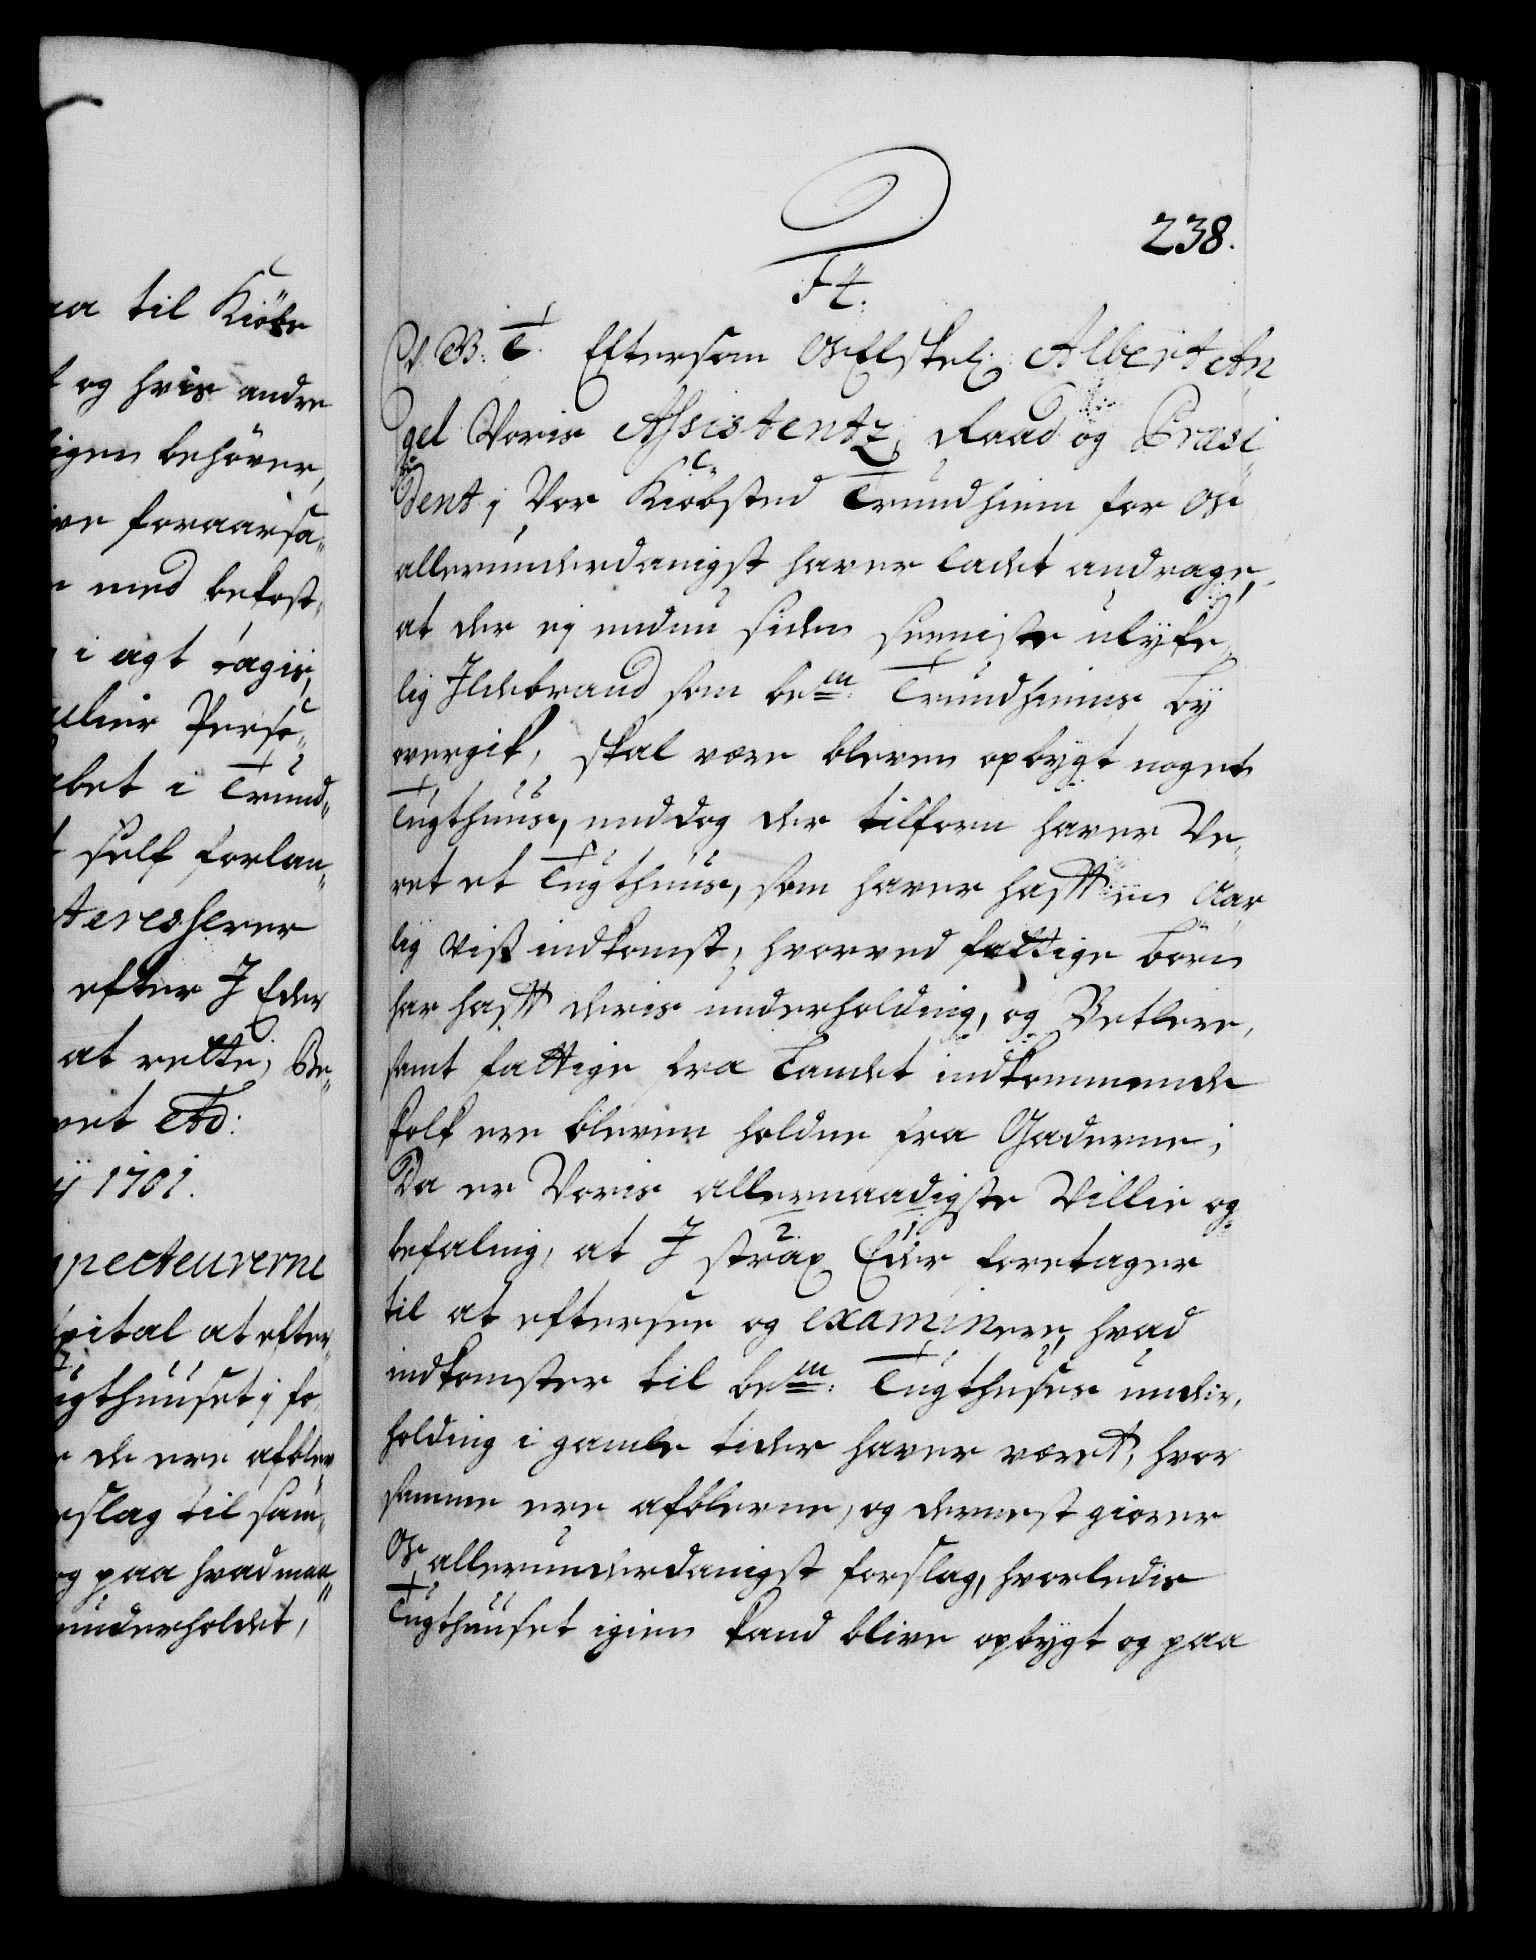 aa til Kiöbe
og hvis andre
igen behöver,
ve foraarsa-
med bekost-
i agt tagis,
ulier Perso-
bet i Trund-
self forlan-
teresherer
efter I Eder
at rette, Be-
vet Ad:
ij 1701.
pecteurerne
pital at efter-
ugthuuset j fo-
de ere afblev
eslag til sam-
og paa hvad maa-
underholdet,
238.
F 4.
V. G: T. Eftersom Os Elskel: Albert An
gel Voris Assistentz Raad og Præsi
dent j Vor Kiöbsted Trundhiem for Os
allerunderdanigst haver ladet andrage,
at der ej endnu siden seeniste ulyke
lig Ildebrand som bem: Trundhiems by
overgik, skal være bleven opbygt noget
Tugthuus, enddog der tilforn haver Ve-
ret et Tugthuus, som haver hafft een Aar
lig viss indkomst, hvorved fattige börn
har hafft deris underholding, og Betlere,
samt fattige fra Landet indkommende
folk ere bleven holdne fra Gaderne;
Da er Voris allernaadigste Villie og
befaling, at I strax Eder foretager
til at eftersee og examinere, hvad
indkomster til bem: Tugthuses under-
holding i gamle tider haver været, hvor
samme ere afblevne, og dernest giører
Os allerunderdanigst forslag, hvorledis
Tugthuuset igien kand blive opbygt og paa